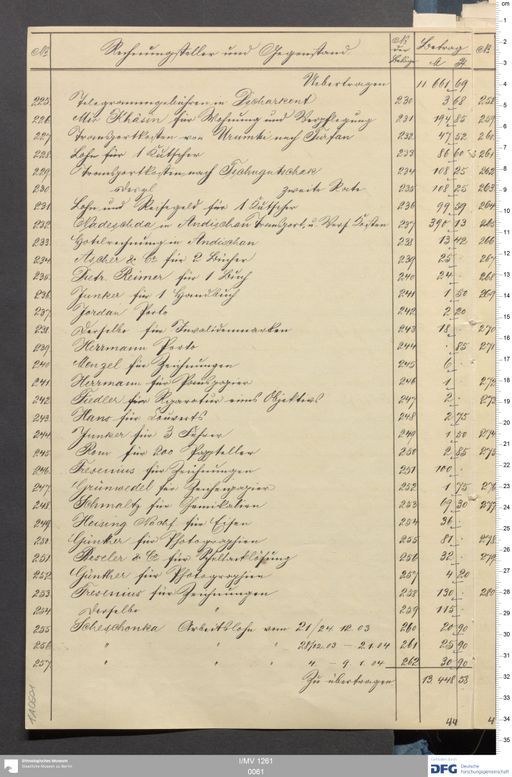 № Rechnungssteller und Gegenstand № der Belege Betrag M. Pf. №
Uebertragen 11 661 69
225 Telegrammgebühren in Dscharkent 230 3 68 258
226 Mir Khâsim für Wohnung und Verpflegung 231 194 85 259
227 Transportkosten von Urumtsi nach Turfan 232 47 52 260
228 Lohn für 1 Kutscher 233 86 60 261
229 Transportkosten nach Tschugutschak 234 108 25 262
230 desgl. zweite Rate 235 108 25 263
231 Lohn und Reisegeld für 1 Kutscher 236 99 59 264
232 Nadeschda in Andischan Transport u. Verp. Kosten 237 390 13 265
233 Hotelrechnung in Andischan 238 13 42 266
234 Ascher & Co für 2 Bücher 239 25 267
235 Dietr. Reimer für 1 Buch 240 24 268
236 Junker für 1 Handbuch 241 1 50 269
237 Jordan Porto 242 2 20
238 Derselbe für Invalidenmarken 243 18 270
239 Herrmann Porto 244 85 271
240 Menzel für Zeichnungen 245 6
241 Herrmann für Pauspapier 246 1 272
242 Fiedler für Reparatur eines Objektivs 247 2 273
243 Hans für Couverts 248 2 75
244 Junker für 3 Führer 249 1 50 274
245 für 200 Pappteller 250 2 55 275
246 Fresenius für Zeichnungen 251 100
247 Grünwedel für Zeichenpapier 252 1 75 276
248 Schmaltz für Chemikalien 253 69 30 277
249 Heising für Eisen 254 36
250 Günther für Photographien 255 81 278
251 & Co für 256 32 279
252 Günther für Photographien 257 4 20
253 Fresenius für Zeichnungen 258 130 280
254 Derselbe " 259 115
255 Scheschonka Arbeitslohn vom 21/24. 12. 03 260 20 90
256 " " " 28/12. 03 – 2. 1. 04 261 25 90
257 " " " 4. – 9. 1. 04 262 30 90
Zu übertragen 13 448 53
44
1A0501
Ethnologisches Museum
Staatliche Museen zu Berlin
I/MV 1261
0061
Gefördert durch
DFG Deutsche
Forschungsgemeinschaft
cm
1
2
3
4
5
6
7
8
9
10
11
12
13
14
15
16
17
18
19
20
21
22
23
24
25
26
27
28
29
30
31
32
33
34
35